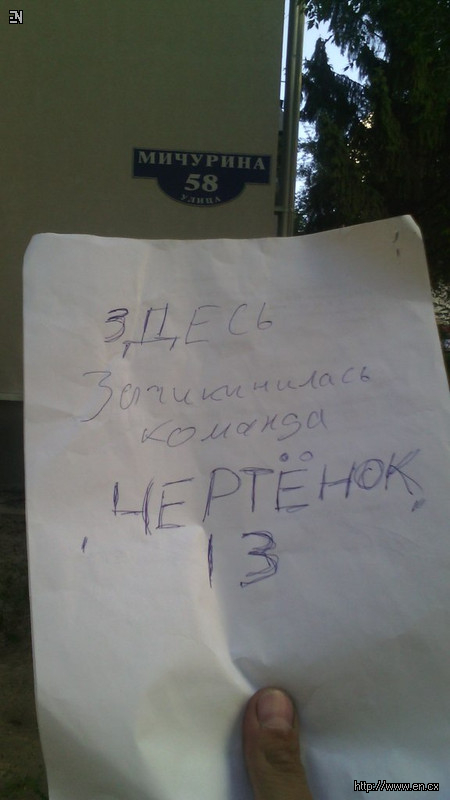 EN
МИЧУРИНА
58
УЛИЦА
ЗДЕСЬ
Зачикинилась
команда
ЧЕРТЁНОК
13
http://www.en.cx